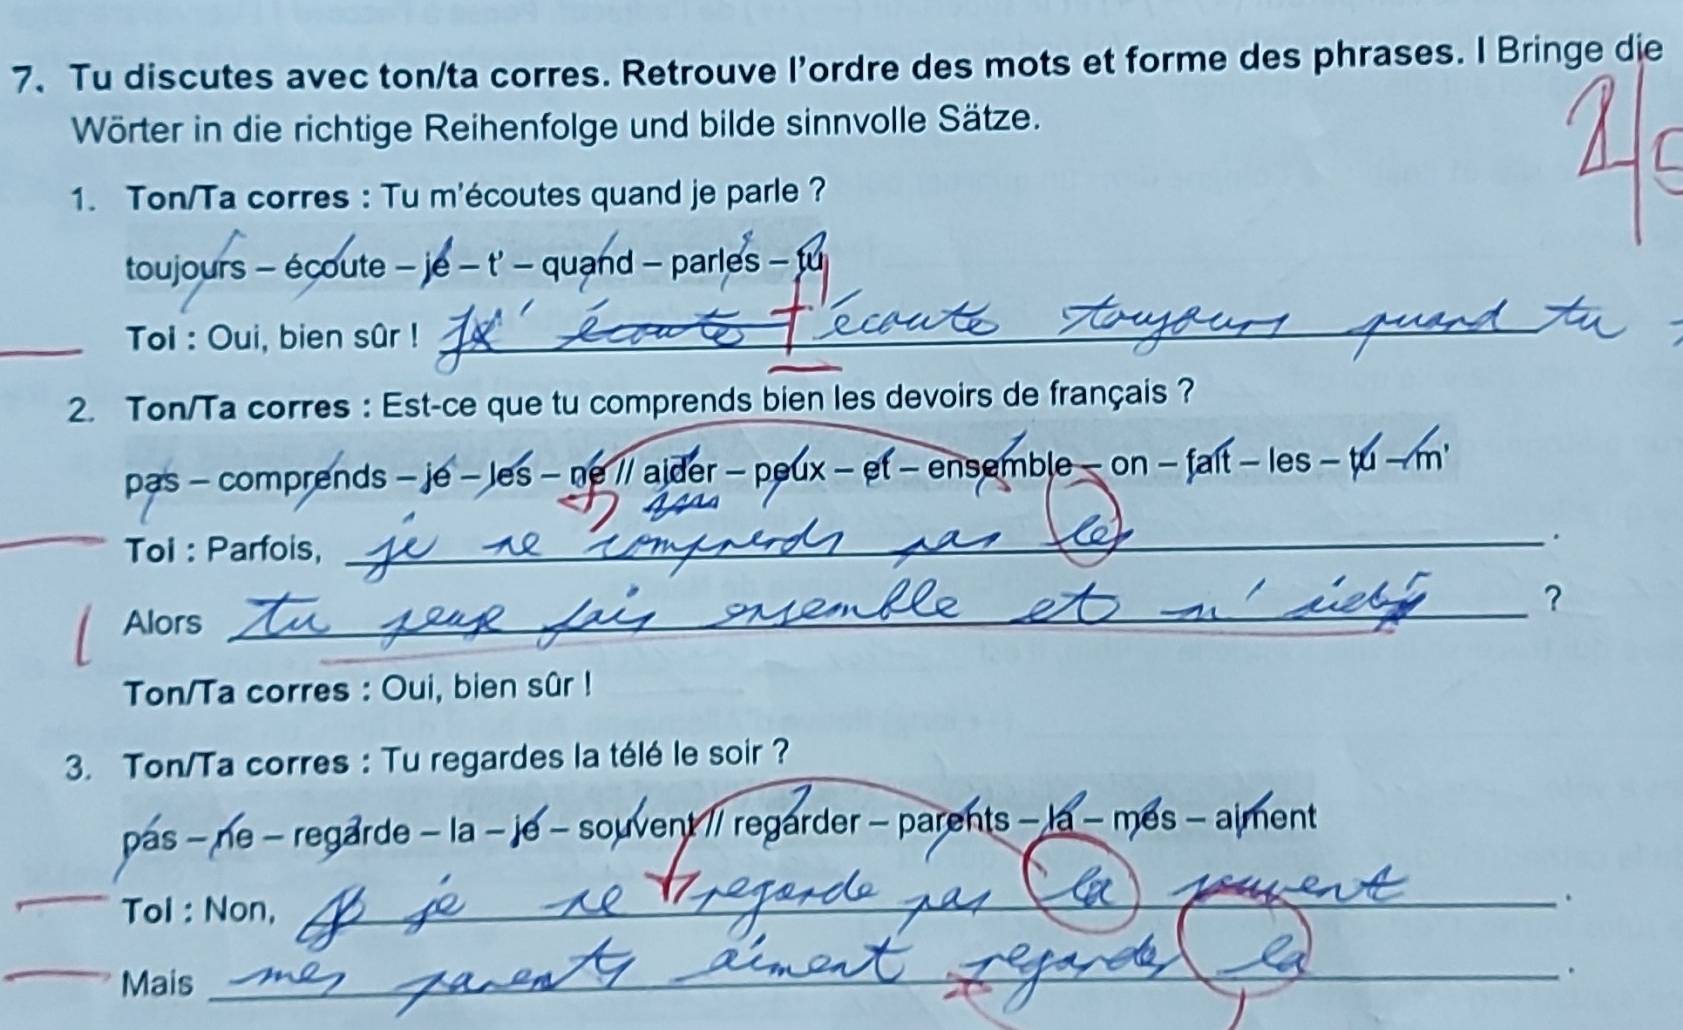 7. Tu discutes avec ton/ta corres. Retrouve l'ordre des mots et forme des phrases. I Bringe die
Wörter in die richtige Reihenfolge und bilde sinnvolle Sätze.
1. Ton/Ta corres : Tu m'écoutes quand je parle ?
toujours – écoute – je – t' – quand – parles – tu
Toi : Oui, bien sûr ! Je' écoute t'écoute toujours quand tu
2. Ton/Ta corres : Est-ce que tu comprends bien les devoirs de français ?
pas – comprends – je – les – ne // aider – peux – et – ensemble – on – fait – les – tu – m'
Toi : Parfois, je ne comprends pas les .
Alors tu peux fais ensemble et m' ?
Ton/Ta corres : Oui, bien sûr !
3. Ton/Ta corres : Tu regardes la télé le soir ?
pas – ne – regarde – la – je – souvent // regarder – parents – la – mes – aiment
Toi : Non, je ne regarde pas la souvent .
Mais mes parents aiment regarder la .